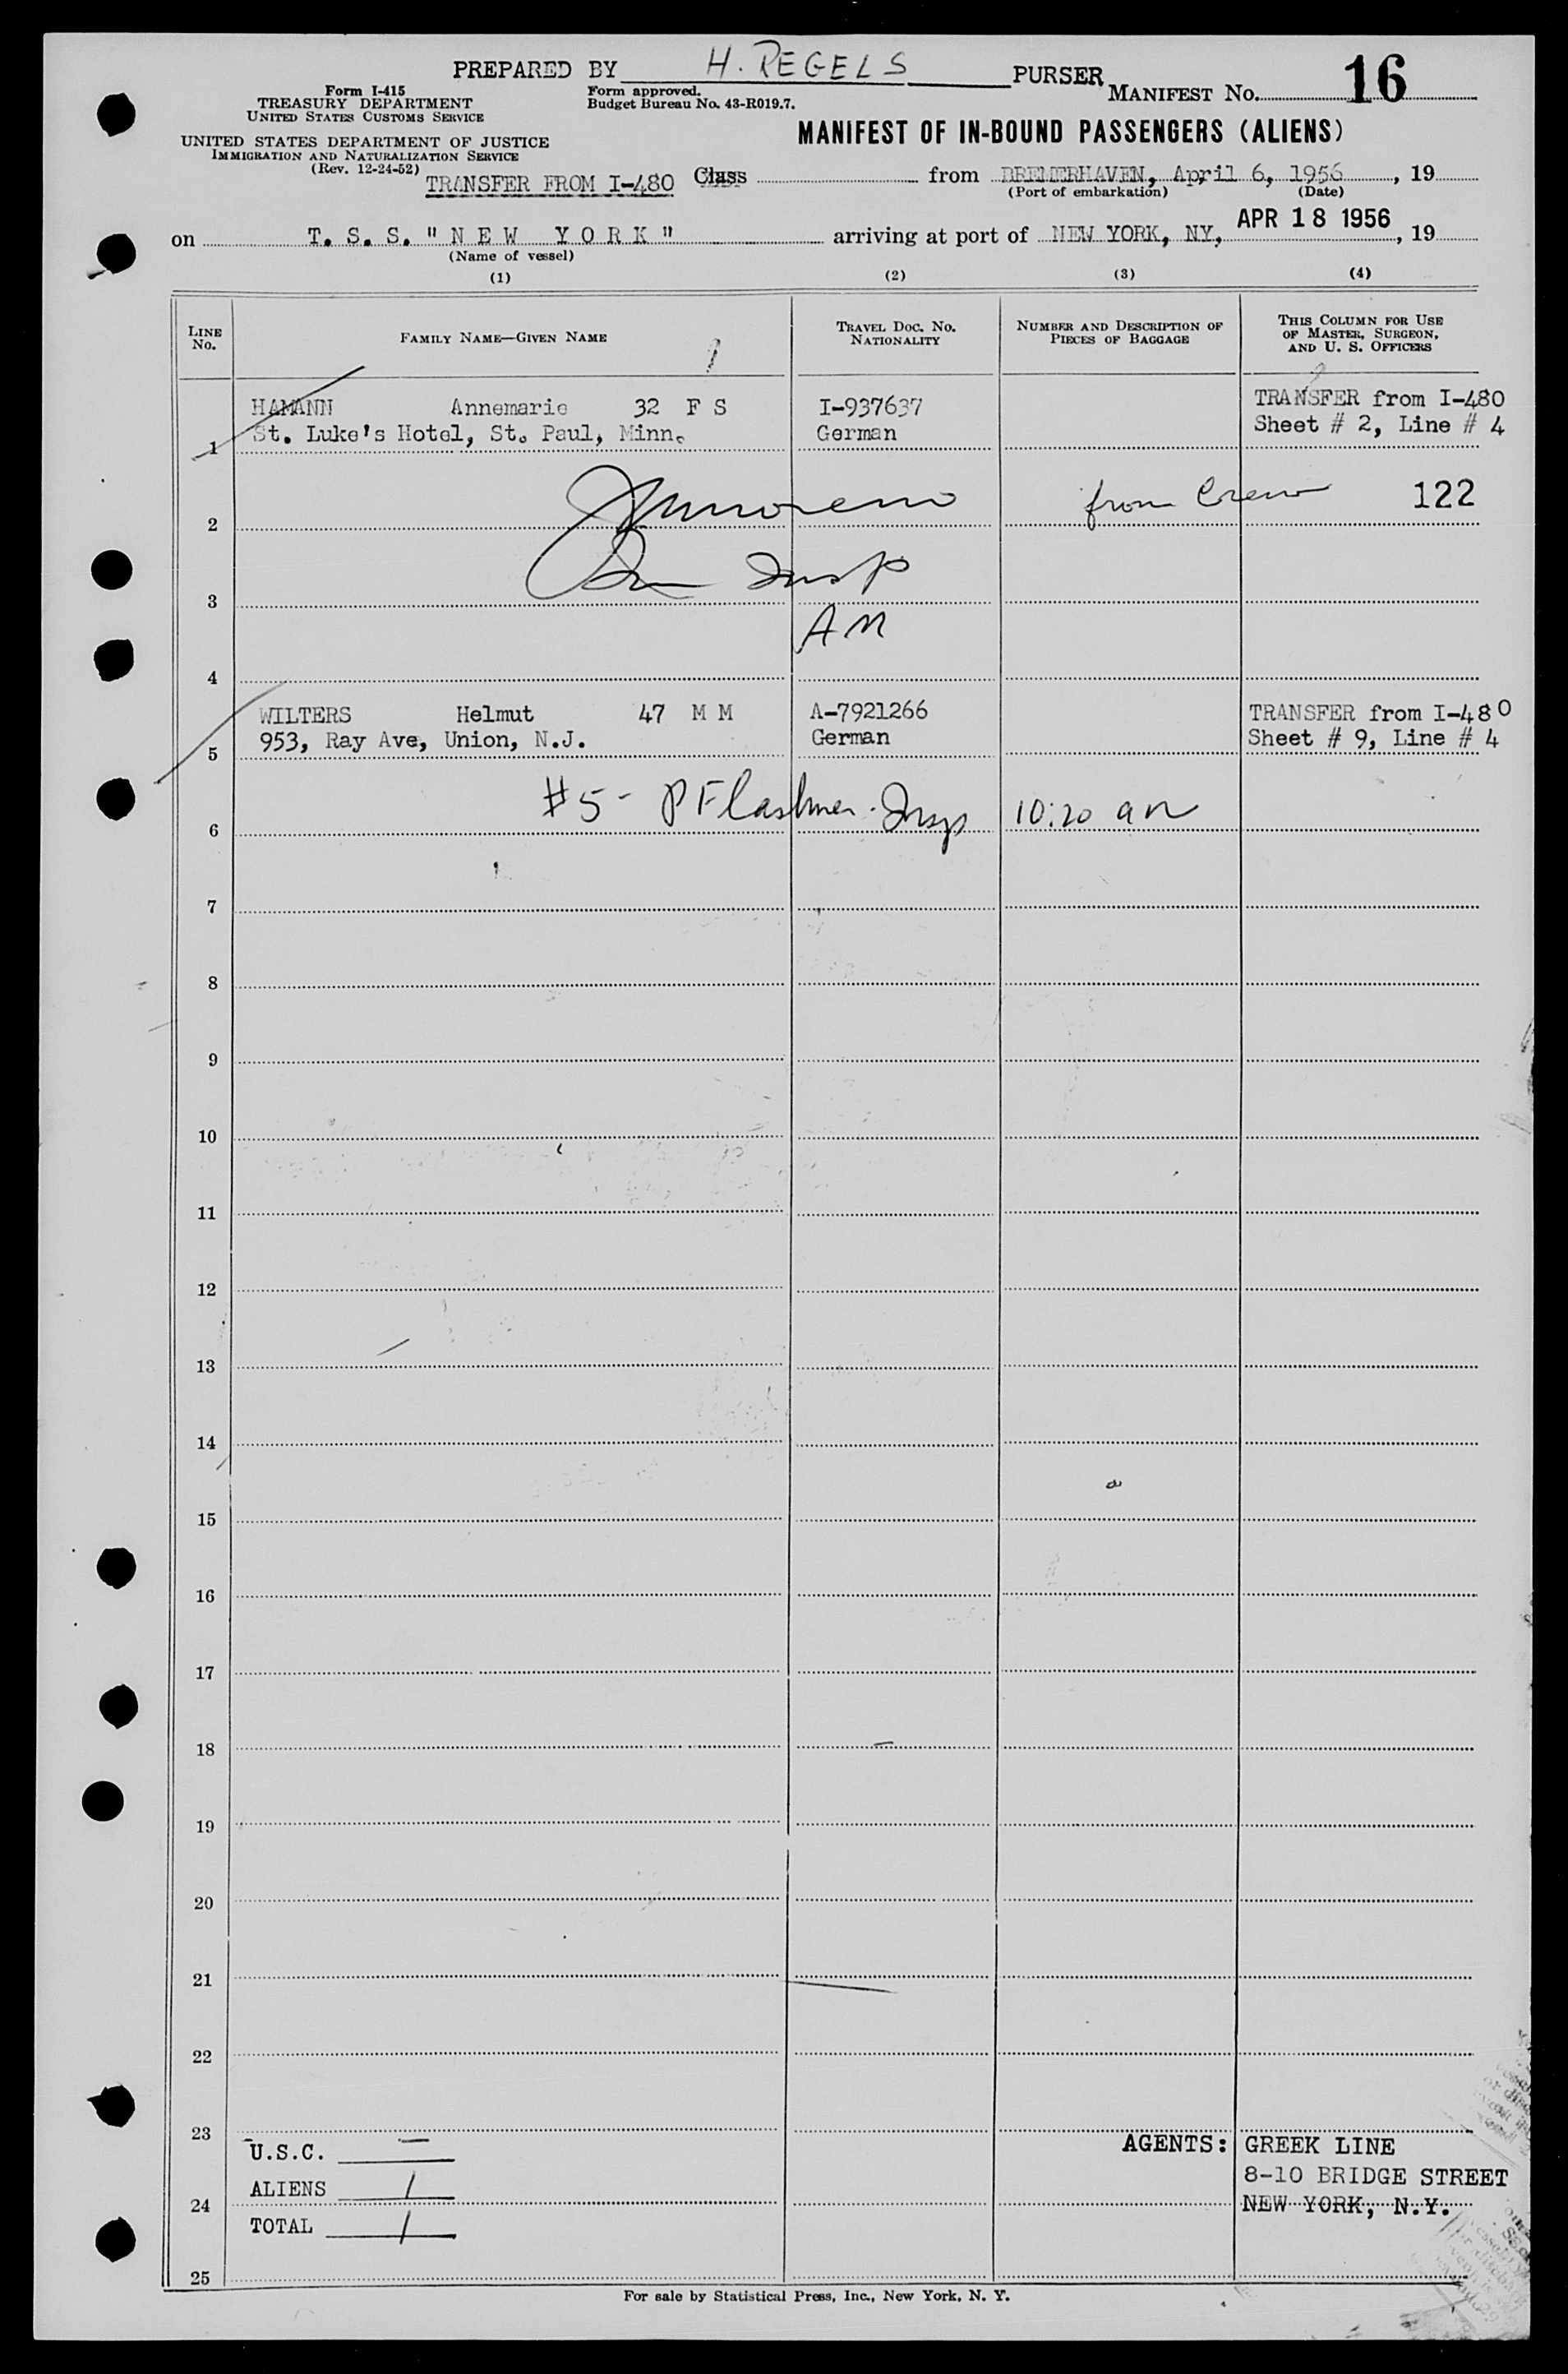 PREPARED BY H. REGELS PURSER
Form I-415
TREASURY DEPARTMENT
UNITED STATES CUSTOMS SERVICE
Form approved.
Budget Bureau No. 43-R019.7.
MANIFEST No. 16
UNITED STATES DEPARTMENT OF JUSTICE
IMMIGRATION AND NATURALIZATION SERVICE
(Rev. 12-24-52)
MANIFEST OF IN-BOUND PASSENGERS (ALIENS)
TRANSFER FROM I-480 Class from BREMERHAVEN, April 6, 1956, 19
(Port of embarkation) (Date)
on T. S. S. " N E W Y O R K " arriving at port of NEW YORK, NY, APR 18 1956, 19
(Name of vessel)
(1) (2) (3) (4)
LINE No.
FAMILY NAME—GIVEN NAME
TRAVEL DOC. NO. NATIONALITY
NUMBER AND DESCRIPTION OF PIECES OF BAGGAGE
THIS COLUMN FOR USE OF MASTER, SURGEON, AND U. S. OFFICERS
HAMANN Annemarie 32 F S I-937637 TRANSFER from I-480
1 St. Luke's Hotel, St. Paul, Minn. German Sheet # 2, Line # 4
2 from Crew 122
3 Insp
AM
4
WILTERS Helmut 47 M M A-7921266 TRANSFER from I-480
5 953, Ray Ave, Union, N.J. German Sheet # 9, Line # 4
6 #5 - P Flashner - Insp 10:20 am
7
8
9
10
11
12
13
14
15
16
17
18
19
20
21
22
23
U.S.C. — AGENTS: GREEK LINE
ALIENS 1 8-10 BRIDGE STREET
24 NEW YORK, N.Y.
TOTAL 1
25
For sale by Statistical Press, Inc., New York, N. Y.